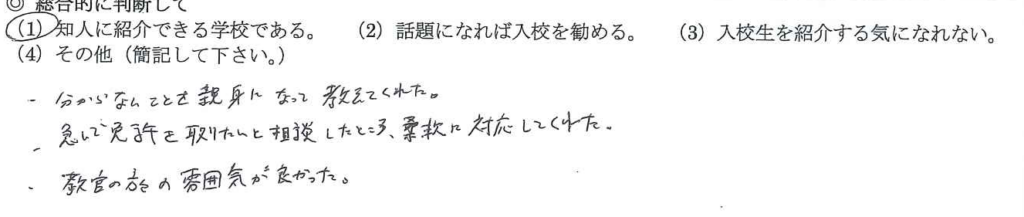 ◎ 総合的に判断して
(1) 知人に紹介できる学校である。 (2) 話題になれば入校を勧める。 (3) 入校生を紹介する気になれない。
(4) その他（簡記して下さい。）
- 分からないことを親身になって教えてくれた。
- 急いで免許を取りたいと相談したところ、柔軟に対応してくれた。
- 教官の方々の雰囲気が良かった。